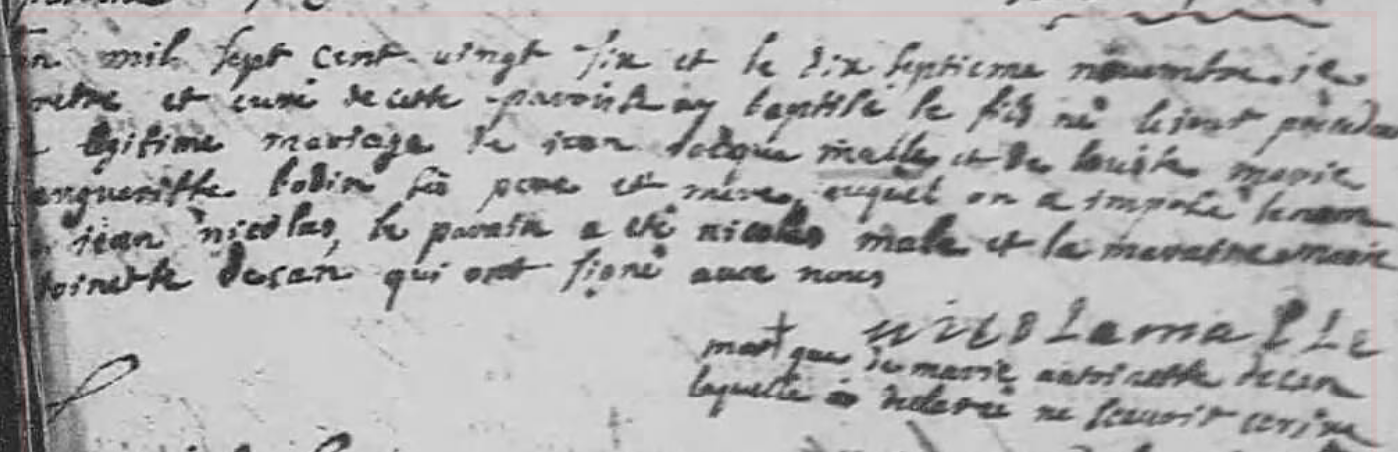 en mil sept cent vingt six et le dix septieme novembre je
pretre et curé de cette paroisse ay baptisé le fils né le jour
legitime mariage de jean malle et de louise marie
bodin ses pere et mere, auquel on a imposé le nom
jean nicolas, le parain a eté nicolas malle et la maraine marie
toinette decan qui ont signé avec nous
nicola malle
marque de marie antoinette decan
laquelle a declaré ne scavoir ecrire